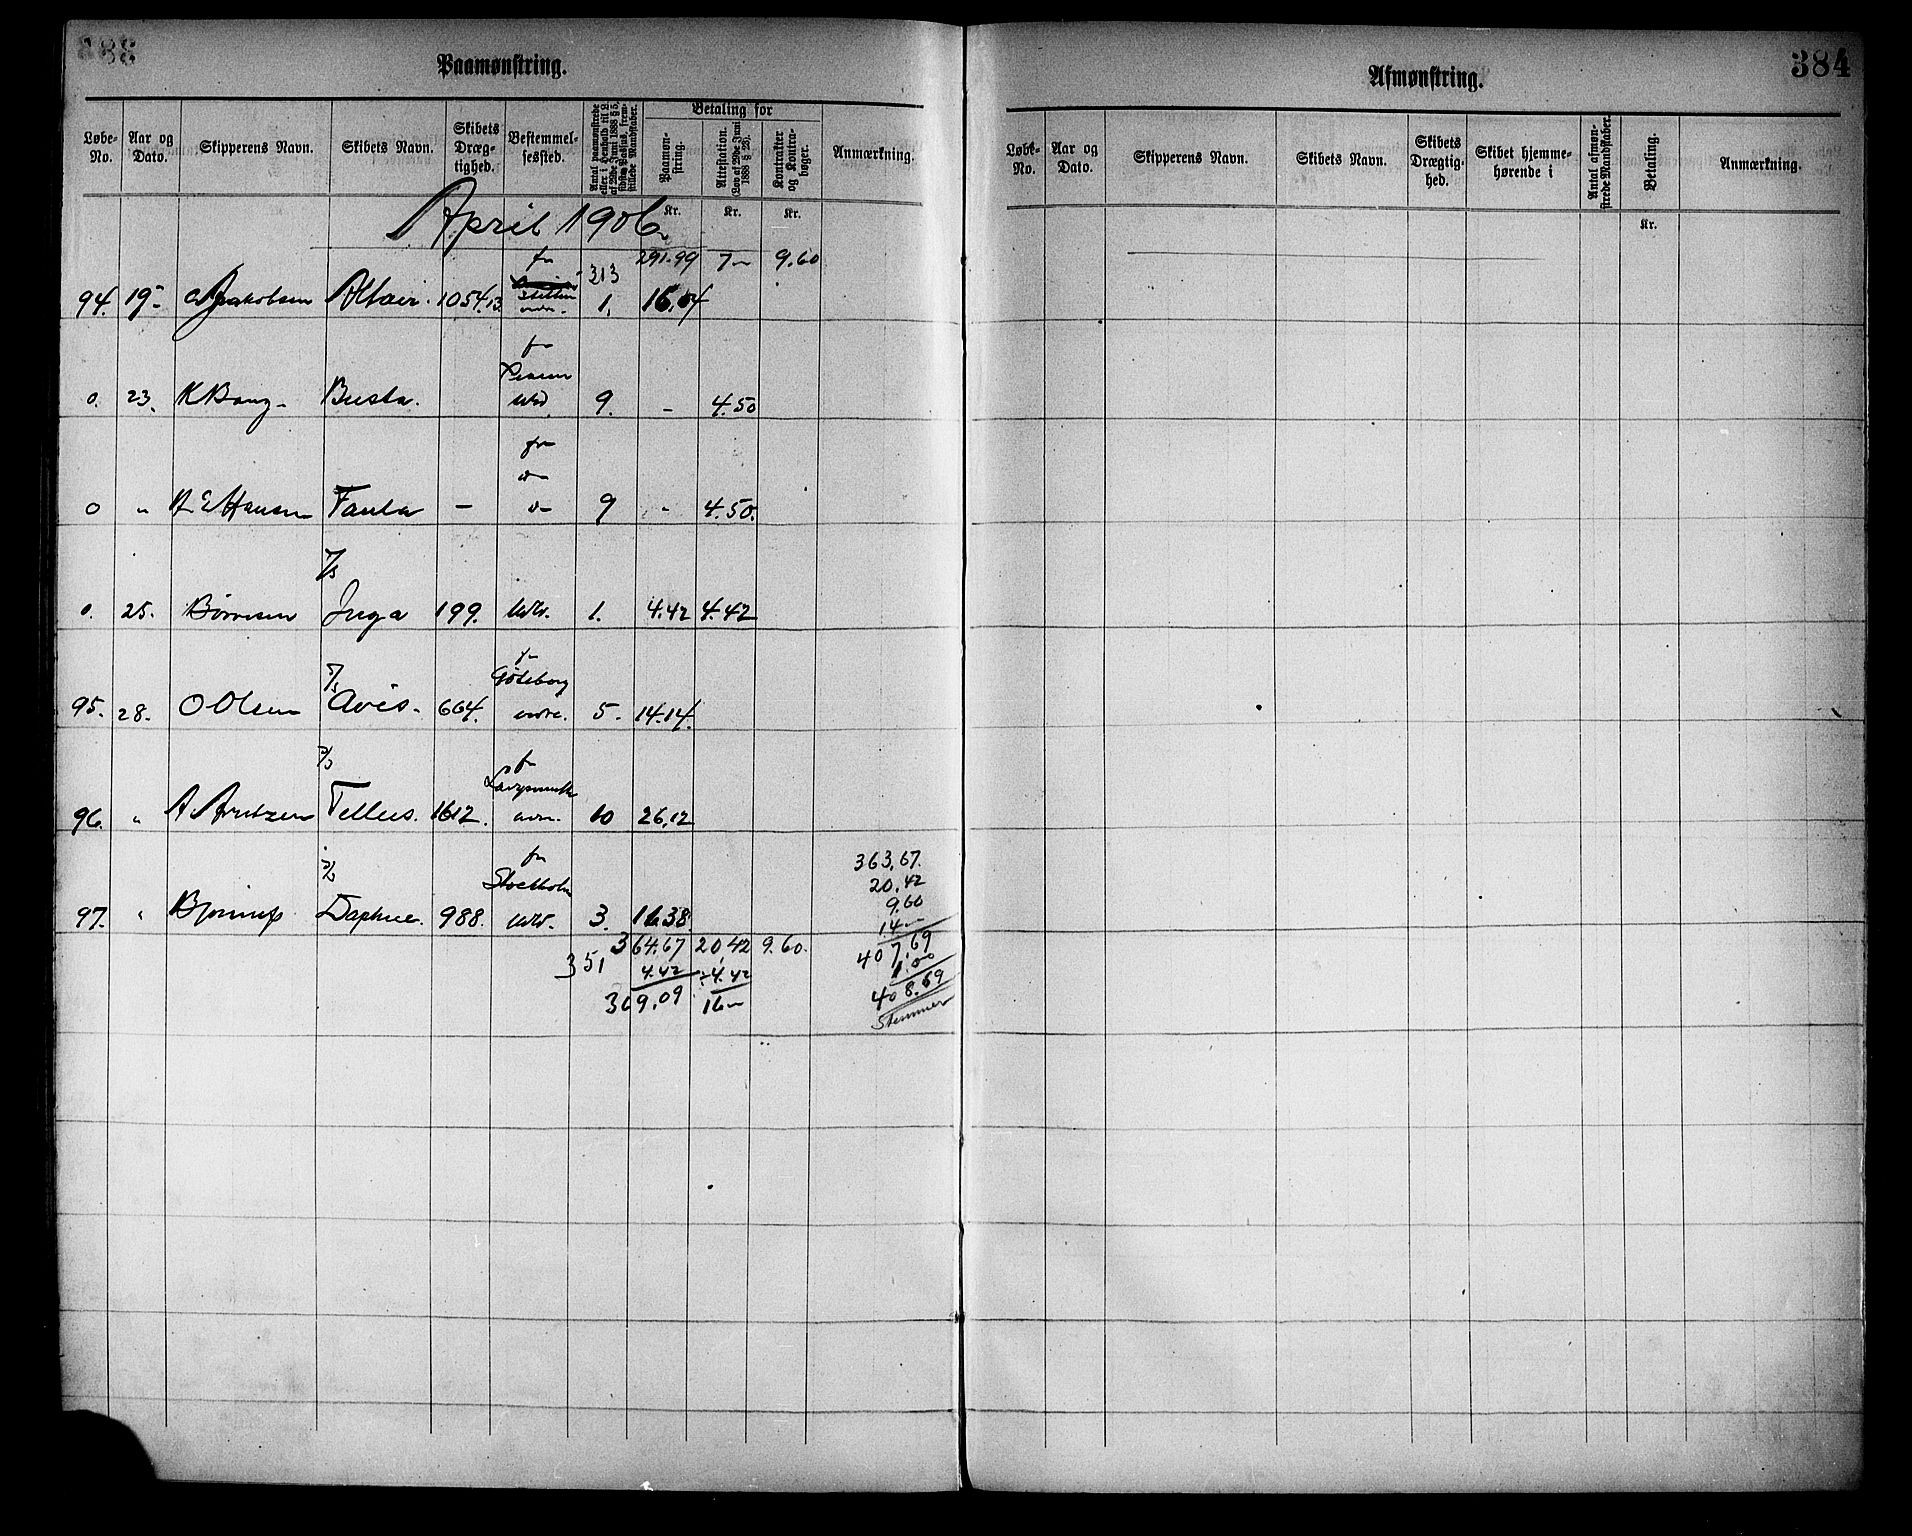 384
Paamønstring.
Løbe-No. Aar og Dato. Skipperens Navn. Skibets Navn. Skibets Drægtighed. Bestemmelsessted. Antal paamønstrede eller i Henhold til L. af 29de Juni 1888 § 5, sidste Passus, fremstillede Mandskaber. Betaling for Paamønstring. Attestation. (Lov af 29de Juni 1888 § 28). Kontrakter og Kontrabøger. Anmærkning.
Kr. Kr. Kr.
April 1906
291.99 7– 9.60
fra 313
94. 19– Jakobsen Altair. 1054.13 Stettin 1. 16.04
fra
0. 23. K Bang– Busta. 9. – 4.50
fra
0 " A E Hansen Fanta – 9 – 4.50.
7/s
0. 25. Børresen Inga 199. 1. 4.42 4.42
Göteborg
95. 28. O Olsen Avis. 664. 5. 14.14.
96. " A. Arntzen Tellus. 1612. 10 26.12
fra
Stockholm
97. " Daphne. 988. 3. 16.38
351 364.67 20,42 9.60.
4.42 ÷ 4.42
369.09 16–
363,67.
20,42
9.60
14–
407,69
1.00
408.69
Stemmer
Afmønstring.
Løbe-No. Aar og Dato. Skipperens Navn. Skibets Navn. Skibets Drægtighed. Skibet hjemmehørende i Antal afmønstrede Mandskaber. Betaling. Anmærkning.
Kr.